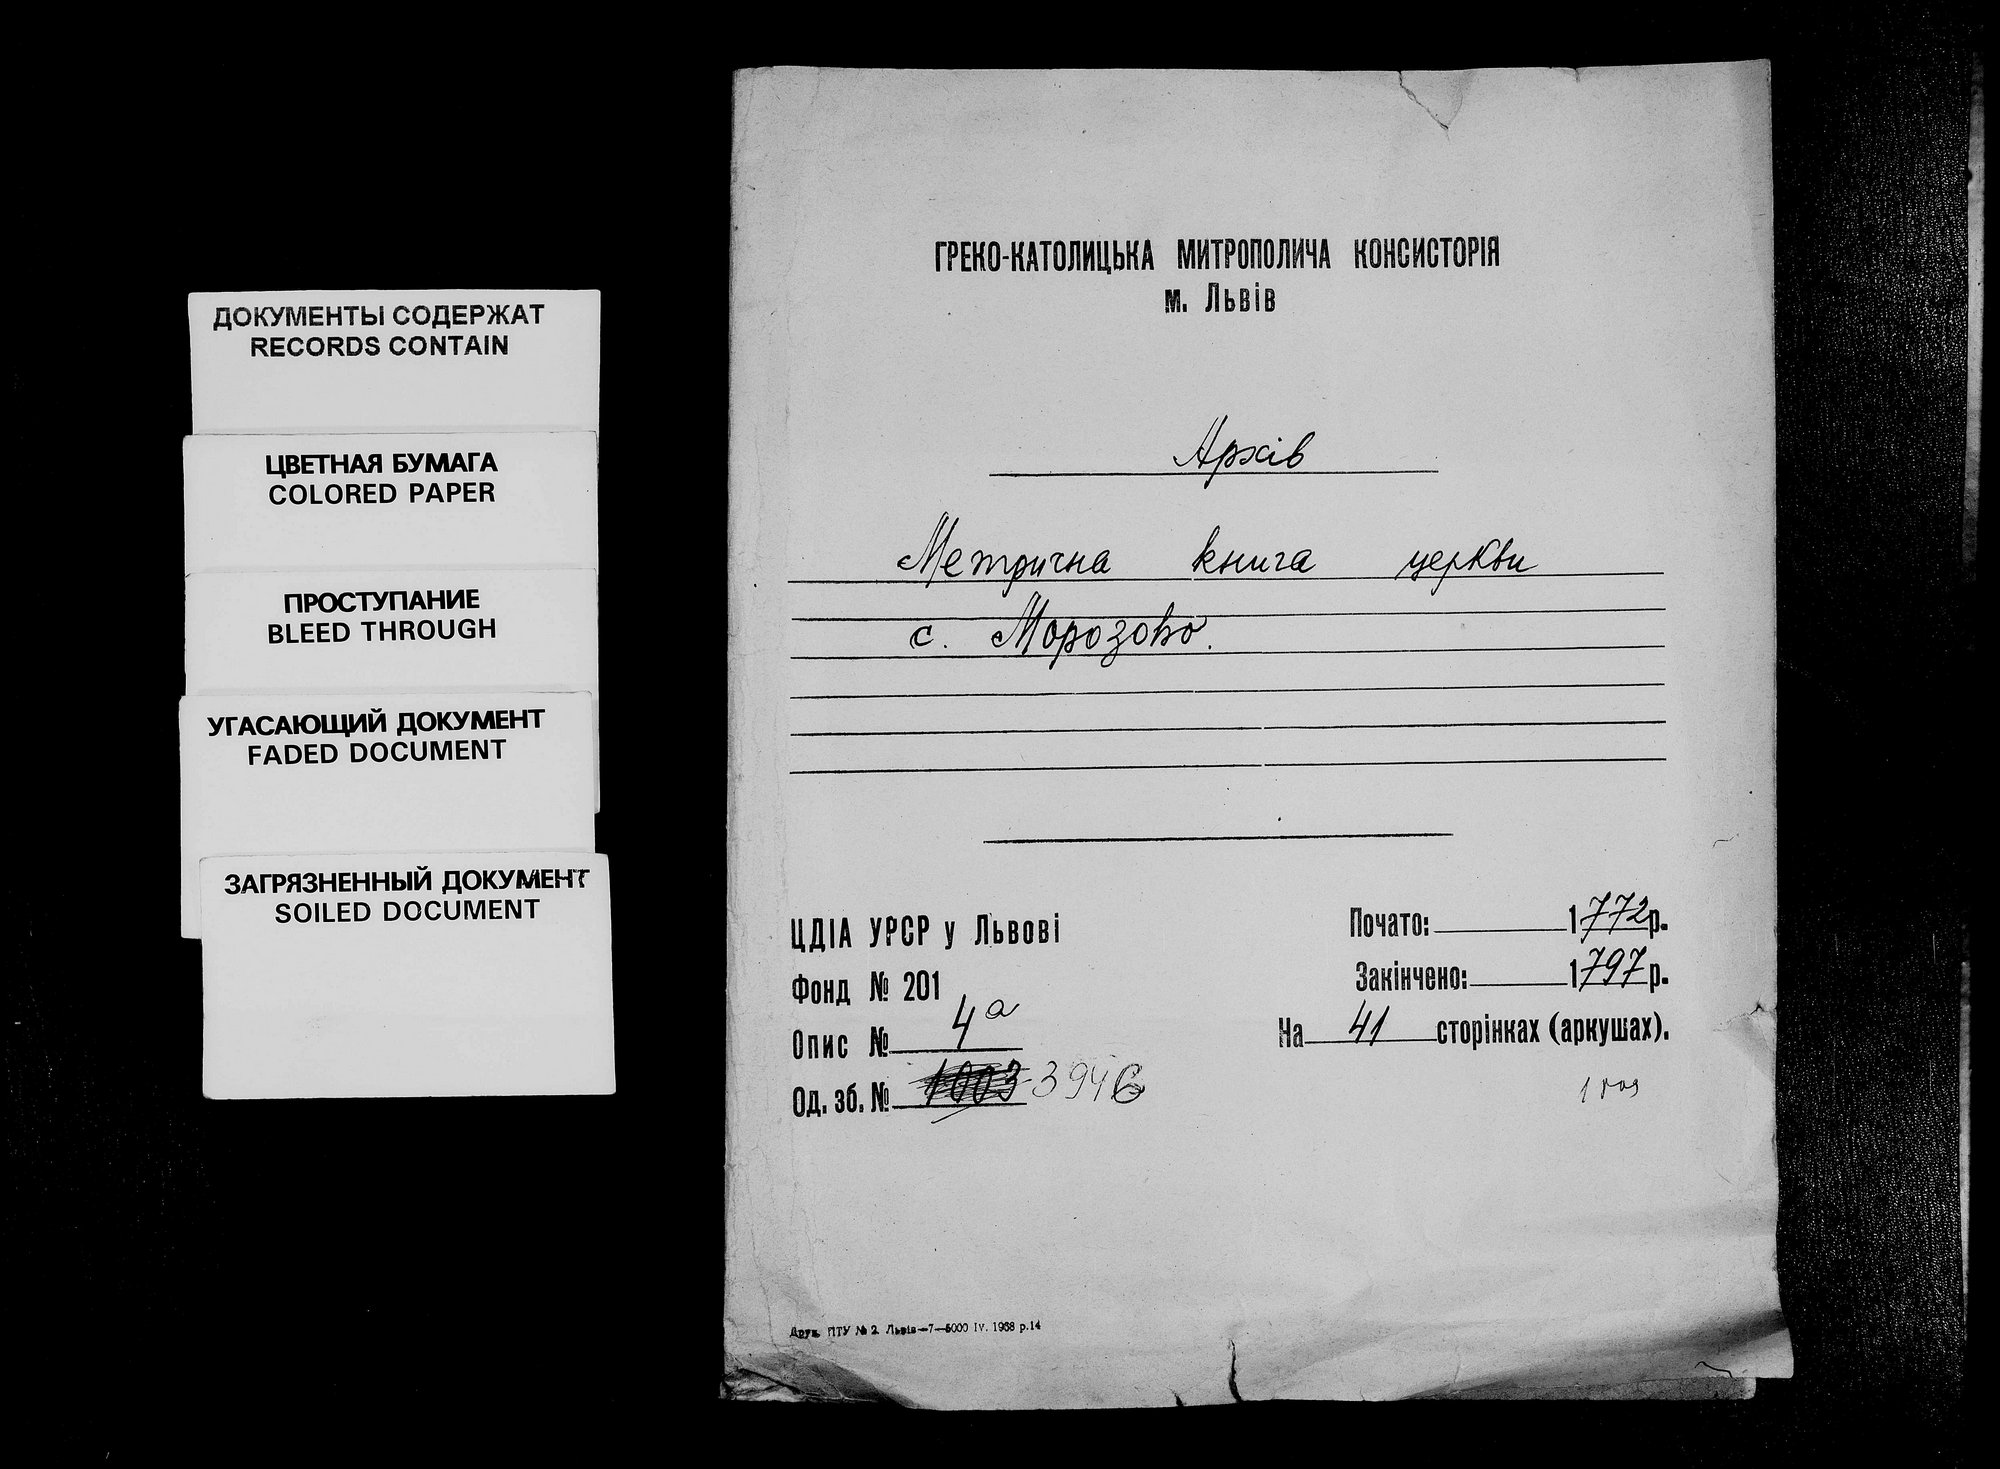 ДОКУМЕНТЫ СОДЕРЖАТ
RECORDS CONTAIN
ЦВЕТНАЯ БУМАГА
COLORED PAPER
ПРОСТУПАНИЕ
BLEED THROUGH
УГАСАЮЩИЙ ДОКУМЕНТ
FADED DOCUMENT
ЗАГРЯЗНЕННЫЙ ДОКУМЕНТ
SOILED DOCUMENT
ГРЕКО-КАТОЛИЦЬКА МИТРОПОЛИЧА КОНСИСТОРІЯ
м. Львів
Архів
Метрична книга церкви
с. Морозово.
ЦДІА УРСР у Львові
Фонд № 201
Опис № 4а
Од. зб. № 1003 394
Почато: 1772 р.
Закінчено: 1797 р.
На 41 сторінках (аркушах).
Друк. ПТУ № 2. Львів—7—5000 IV. 1968 р.14